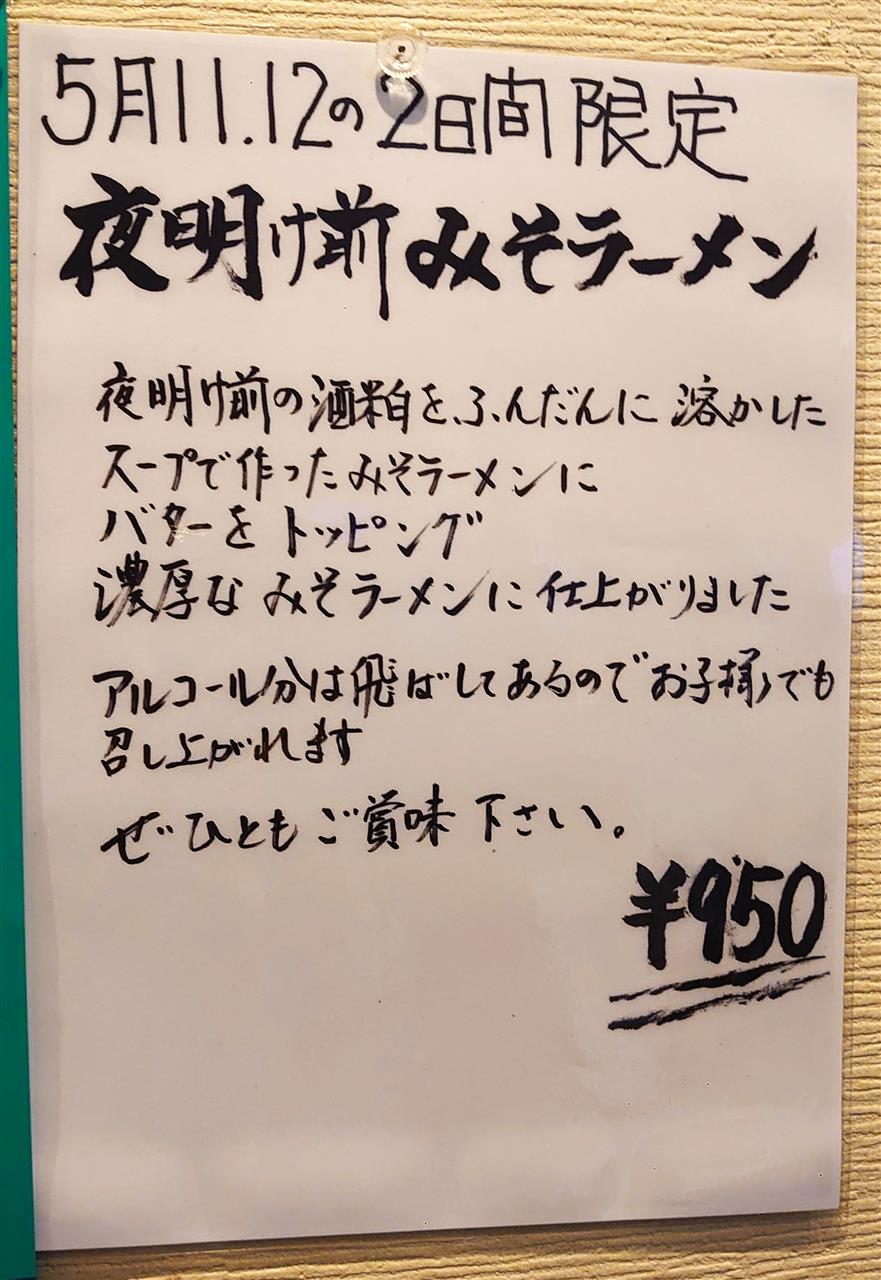 5月11.12の2日間限定
夜明け前みそラーメン
夜明け前の酒粕をふんだんに溶かした
スープで作ったみそラーメンに
バターをトッピング
濃厚なみそラーメンに仕上がりました
アルコール分は飛ばしてあるのでお子様でも
召し上がれます
ぜひともご賞味下さい。
¥950